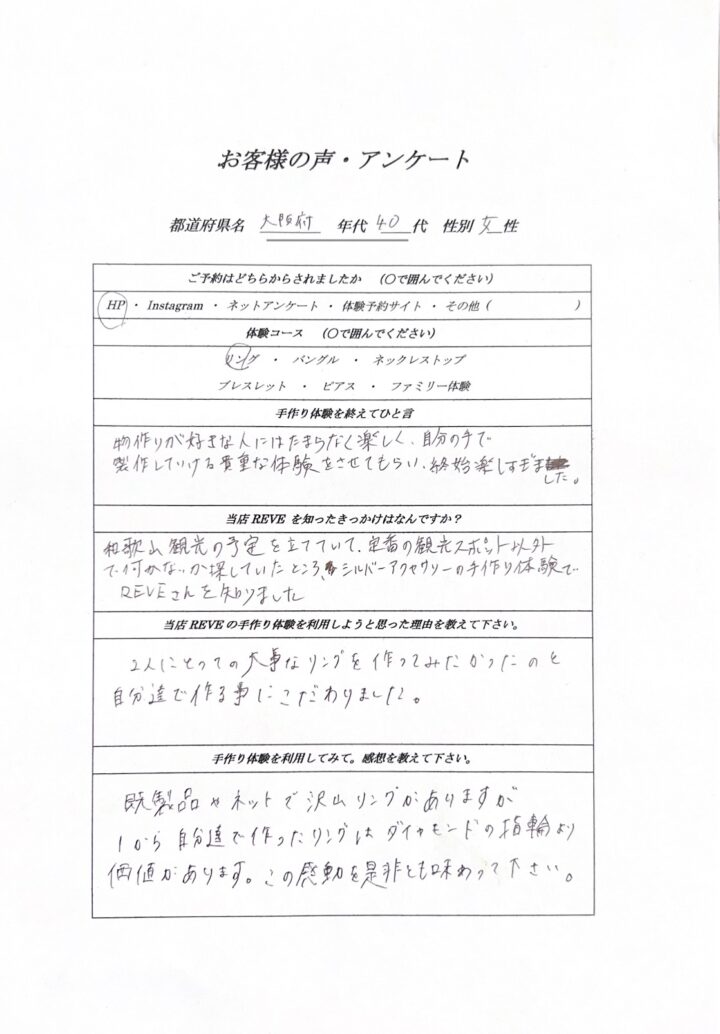 お客様の声・アンケート
都道府県名 大阪府 年代 40 代 性別 女 性
ご予約はどちらからされましたか （〇で囲んでください）
HP ・ Instagram ・ ネットアンケート ・ 体験予約サイト ・ その他（ ）
体験コース （〇で囲んでください）
リング ・ バングル ・ ネックレストップ
ブレスレット ・ ピアス ・ ファミリー体験
手作り体験を終えてひと言
物作りが好きな人にはたまらなく楽しく、自分の手で
製作していける貴重な体験をさせてもらい、終始楽しすぎま
した。
当店 REVE を知ったきっかけはなんですか？
和歌山観光の予定を立てていて、定番の観光スポット以外
で何かないか探していたところ、シルバーアクセサリーの手作り体験で
REVEさんを知りました
当店 REVE の手作り体験を利用しようと思った理由を教えて下さい。
2人にとっての大事なリングを作ってみたかったのと
自分達で作る事にこだわりました。
手作り体験を利用してみて。感想を教えて下さい。
既製品やネットで沢山リングがありますが
1から自分達で作ったリングはダイヤモンドの指輪より
価値があります。この感動を是非とも味わって下さい。